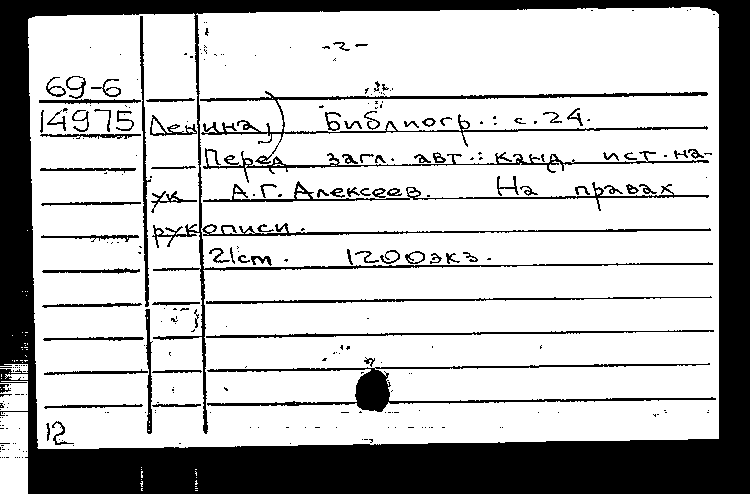 -2-
69-6
14975 Ленина) Библиогр.: с. 24.
Перед загл. авт.: канд. ист. на-
ук А.Г. Алексеев. На правах
рукописи.
21см. 1200экз.
12